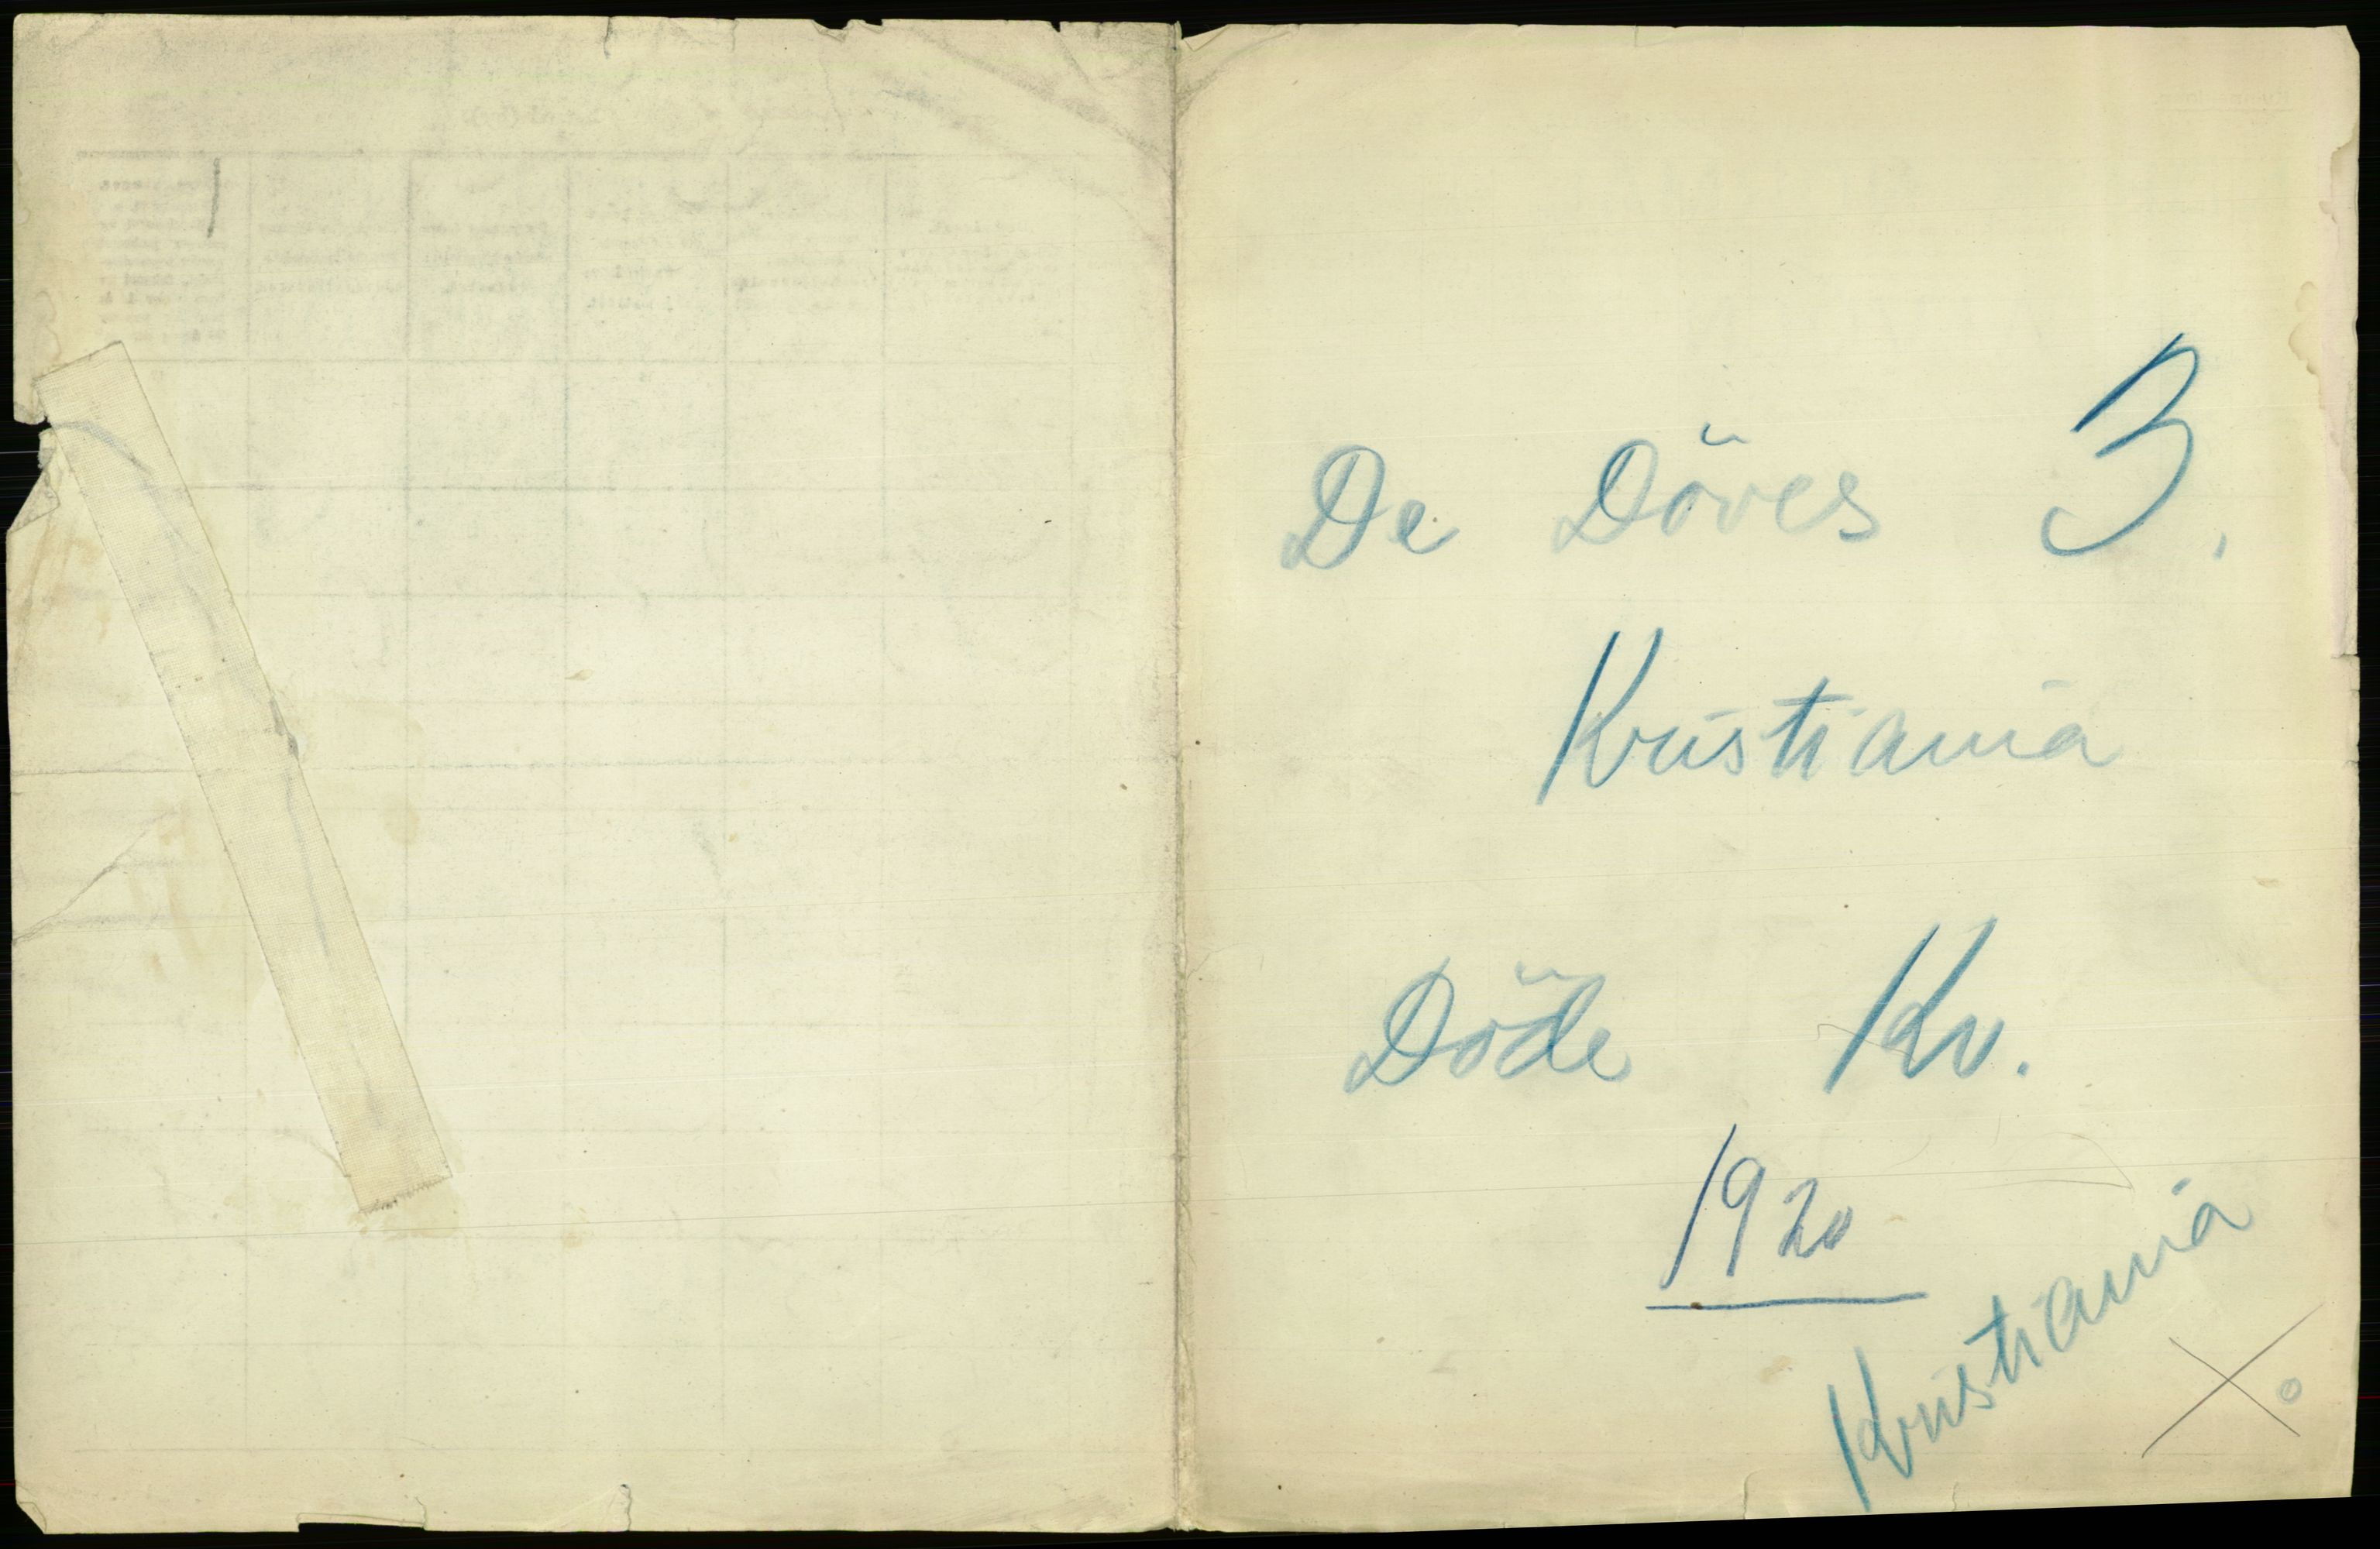 De Döves 3.
Kristiania
Döde Kv.
1920
Kristiania